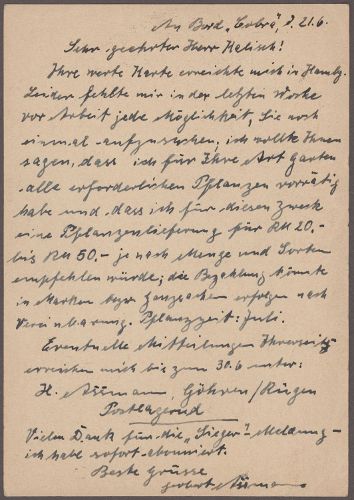 An Bord „Cobra", d. 21.6.
Sehr geehrter Herr Kalisch!
Ihre werte Karte erreichte mich in Hambg.
Leider fehlte mir in der letzten Woche
vor Arbeit jede Möglichkeit, Sie noch
einmal aufzusuchen; ich wollte Ihnen
sagen, dass ich für Ihre Art Garten
alle erforderlichen Pflanzen vorrätig
habe und dass ich für diesen Zweck
eine Pflanzenlieferung für RM 20.-
bis RM 50.- je nach Menge und Sorten
empfehlen würde; die Bezahlung könnte
in Marken bezw. Ganzsachen erfolgen nach
Vereinbarung. Pflanzzeit: Juli.
Eventuelle Mitteilungen Ihrerseits
erreichen mich bis zum 30.6 unter:
H. Assmann, Göhren/Rügen
Postlagernd
Vielen Dank für die „Sieger"-Meldung -
ich habe sofort abonniert.
Beste Grüsse